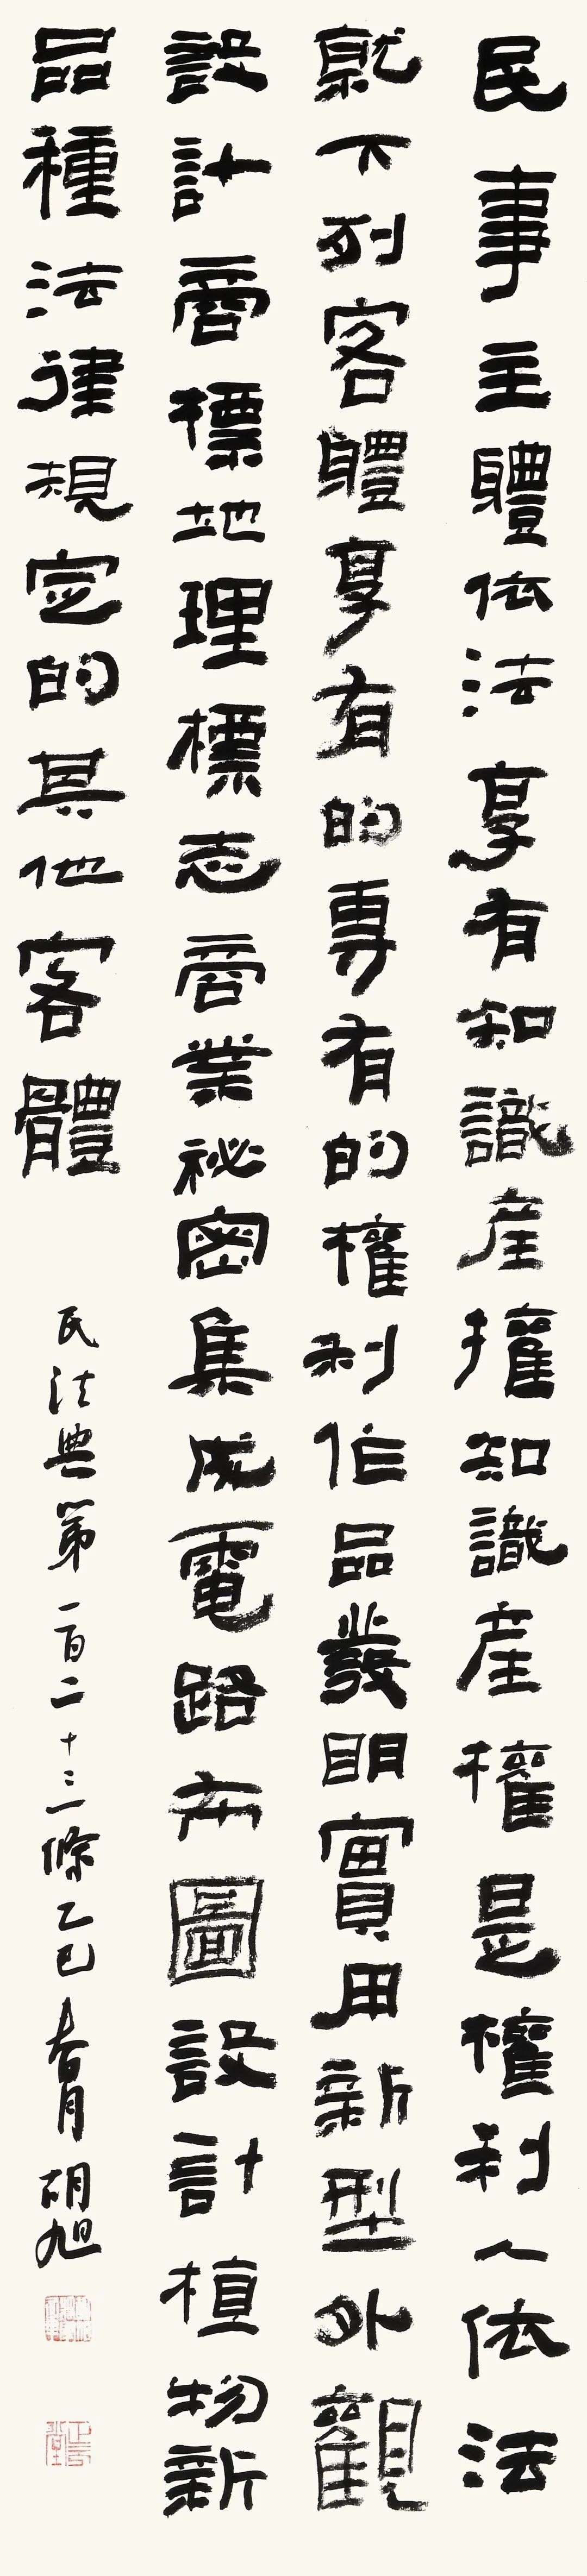 民事主體依法享有知識産權知識産權是權利人依法
就下列客體享有的專有的權利作品發明實用新型外觀
設計商標地理標志商業祕密集成電路布圖設計植物新
品種法律規定的其他客體
民法典第一百二十三條乙巳春月胡旭